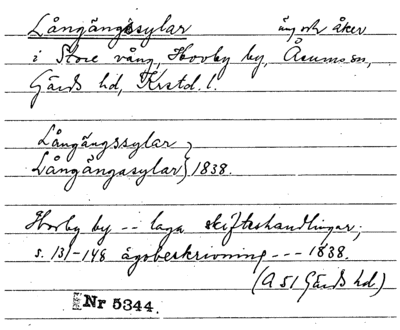 Långängssylar äng och åker
i Store vång, Horby by, Åsums sn,
Gärds hd, Krstd. l.
Långängssylar,
Långängasylar} 1838.
Horby by -- laga skifteshandlingar;
s. 131-148 ägobeskrivning --- 1838.
(A 51 Gärds hd)
Nr 5344.